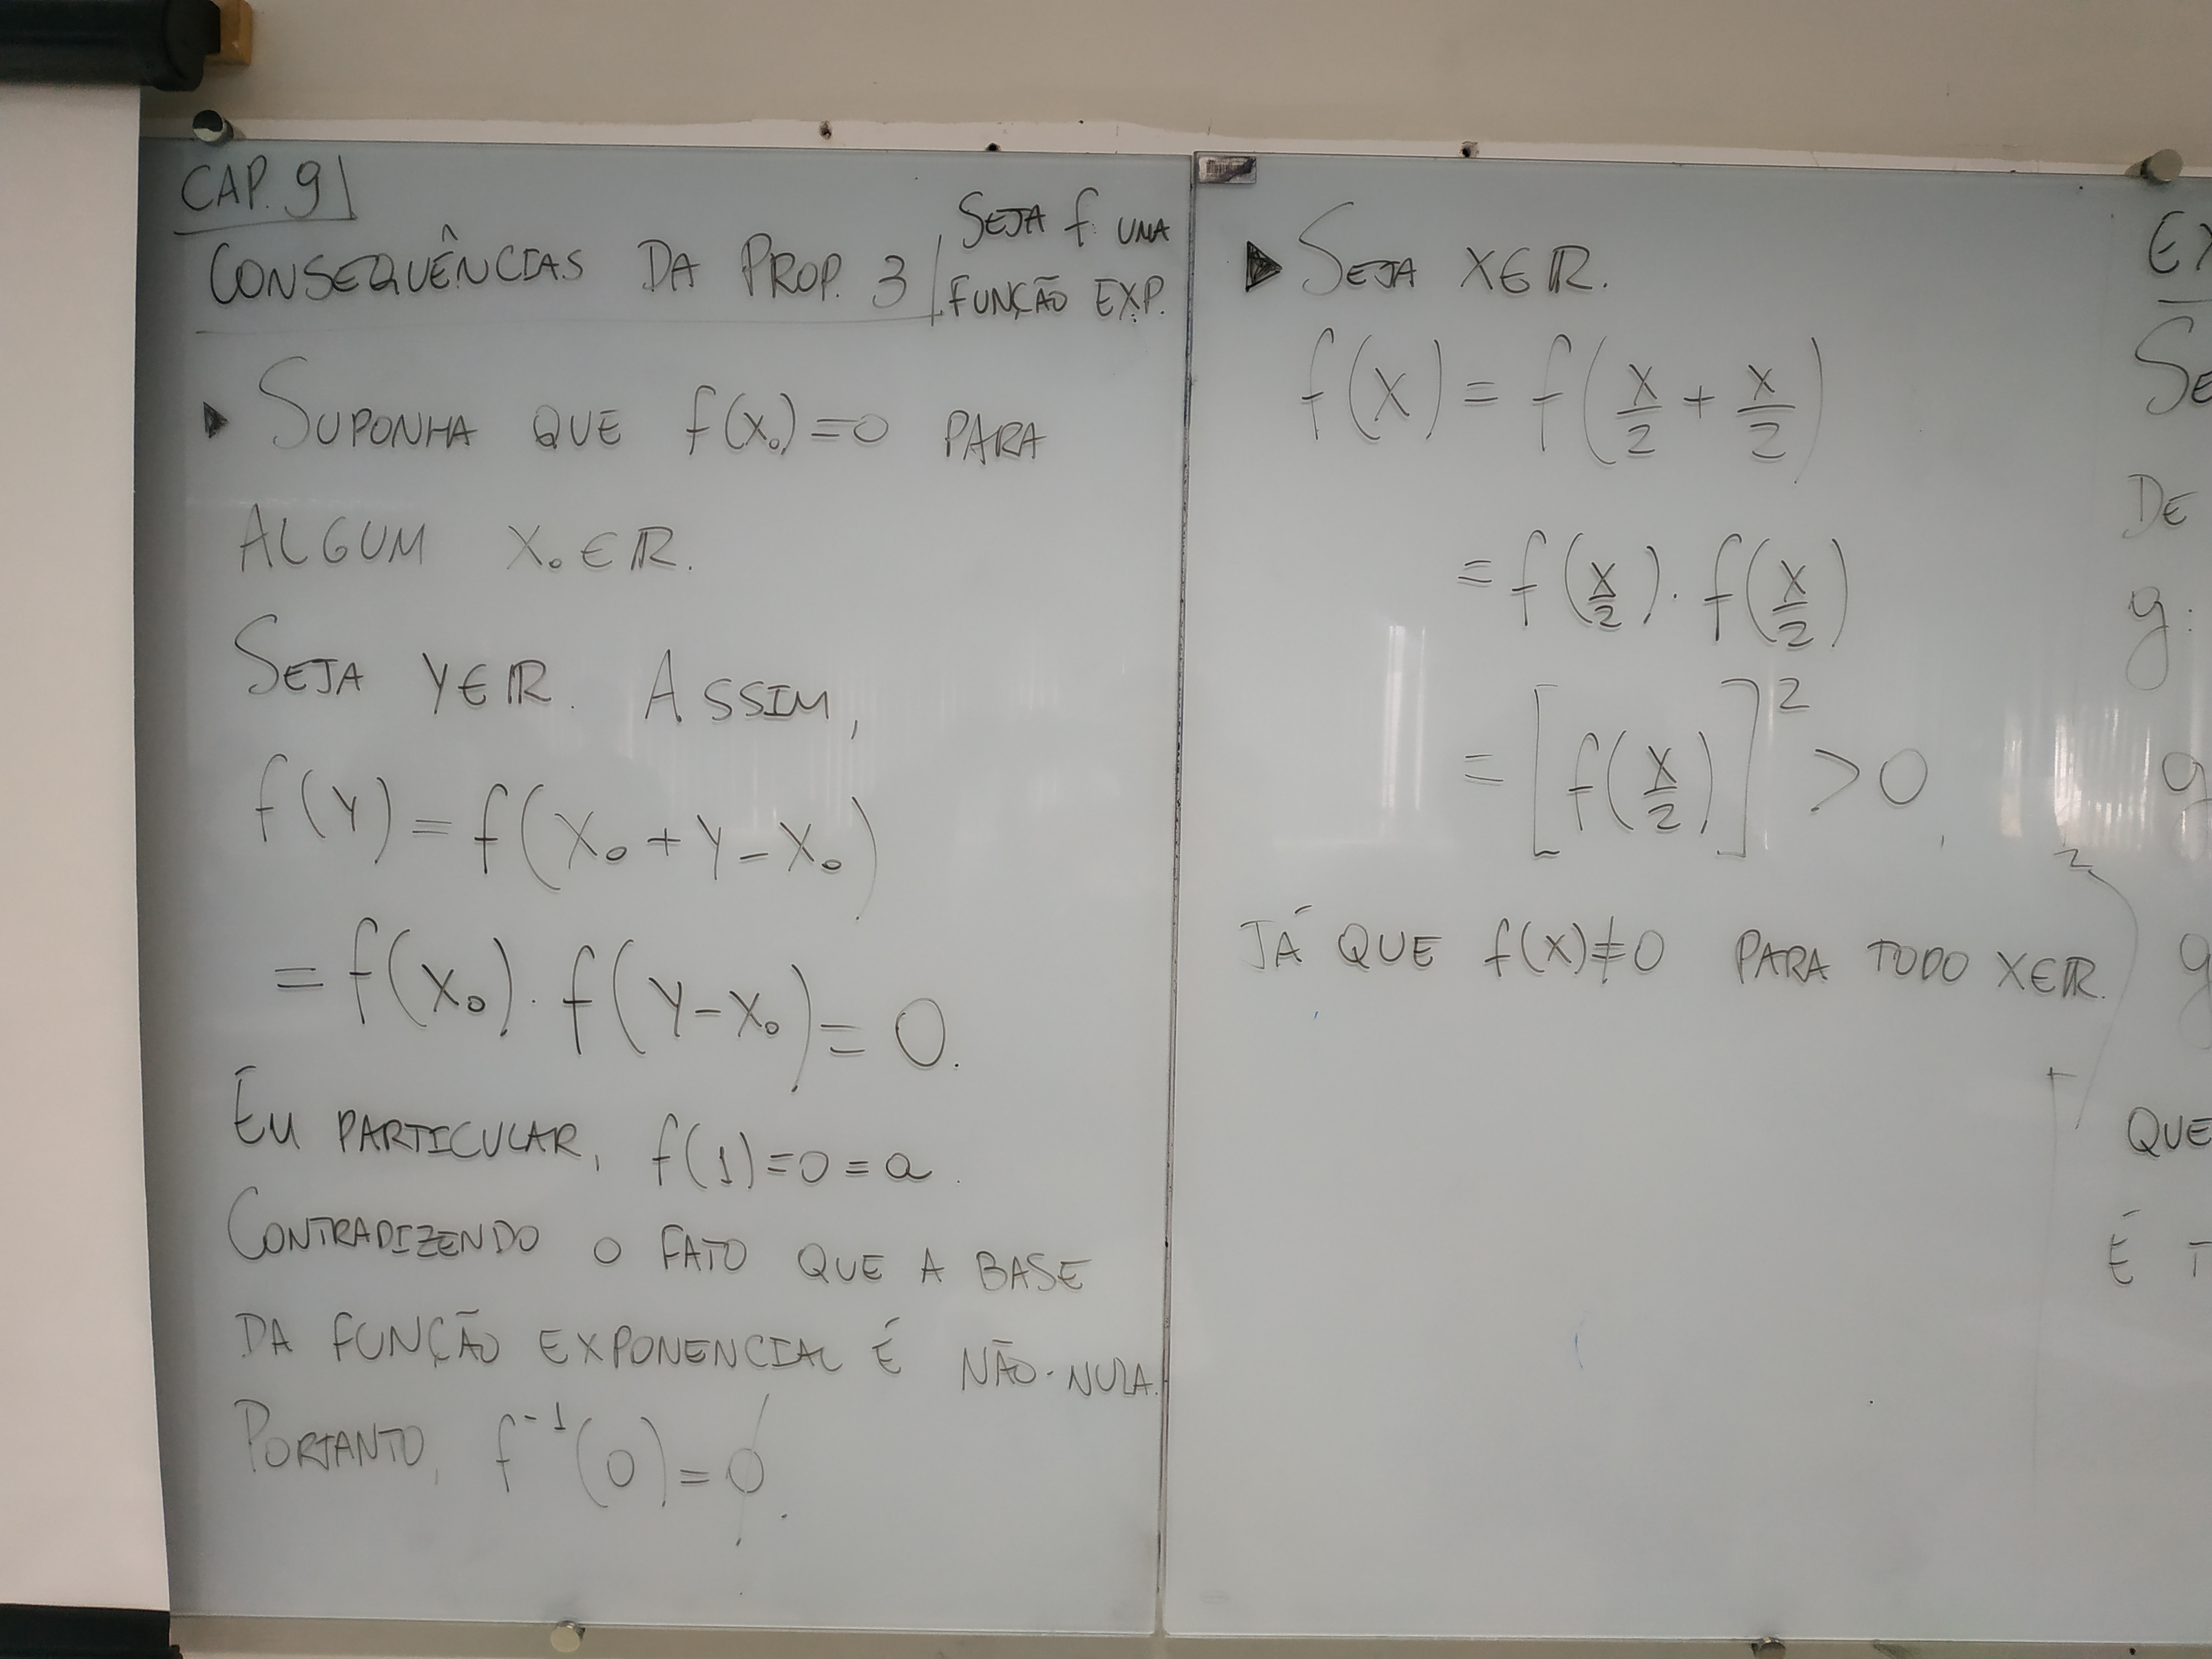 CAP. 9
CONSEQUÊNCIAS DA PROP. 3
SEJA f UMA
FUNÇÃO EXP.
▶ SUPONHA QUE f(x₀)=0 PARA
ALGUM X₀∈ℝ.
SEJA Y∈ℝ. ASSIM,
f(Y)=f(X₀+Y-X₀)
=f(X₀).f(Y-X₀)=0.
EM PARTICULAR, f(1)=0=a.
CONTRADIZENDO O FATO QUE A BASE
DA FUNÇÃO EXPONENCIAL É NÃO-NULA.
PORTANTO, f⁻¹(0)=∅.
▶ SEJA X∈ℝ.
f(X)=f(X/2+X/2)
=f(X/2).f(X/2)
=[f(X/2)]²>0,
JÁ QUE f(X)≠0 PARA TODO X∈ℝ.
EX
SE
DE
g:
g
g
QUE
É T